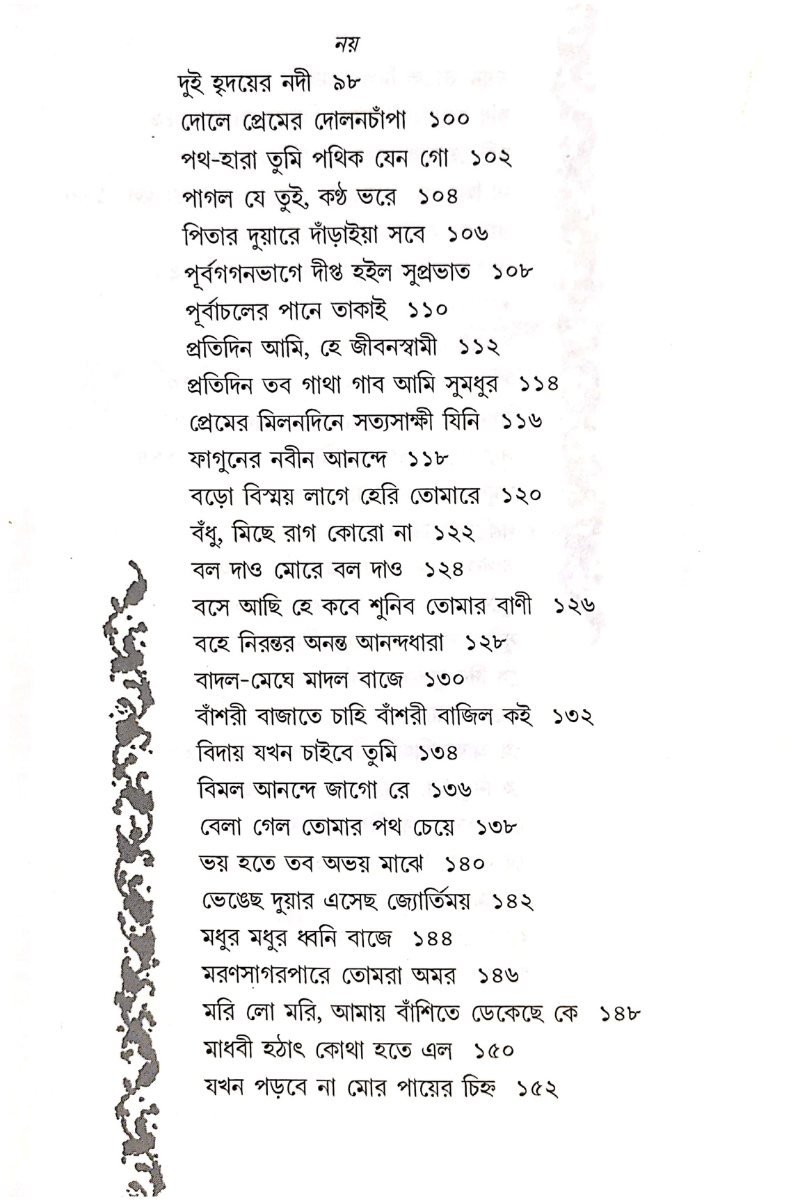 নয়
দুই হৃদয়ের নদী ৯৮
দোলে প্রেমের দোলনচাঁপা ১০০
পথ-হারা তুমি পথিক যেন গো ১০২
পাগল যে তুই, কণ্ঠ ভরে ১০৪
পিতার দুয়ারে দাঁড়াইয়া সবে ১০৬
পূর্বগগনভাগে দীপ্ত হইল সুপ্রভাত ১০৮
পূর্বাচলের পানে তাকাই ১১০
প্রতিদিন আমি, হে জীবনস্বামী ১১২
প্রতিদিন তব গাথা গাব আমি সুমধুর ১১৪
প্রেমের মিলনদিনে সত্যসাক্ষী যিনি ১১৬
ফাগুনের নবীন আনন্দে ১১৮
বড়ো বিস্ময় লাগে হেরি তোমারে ১২০
বঁধু, মিছে রাগ কোরো না ১২২
বল দাও মোরে বল দাও ১২৪
বসে আছি হে কবে শুনিব তোমার বাণী ১২৬
বহে নিরন্তর অনন্ত আনন্দধারা ১২৮
বাদল-মেঘে মাদল বাজে ১৩০
বাঁশরী বাজাতে চাহি বাঁশরী বাজিল কই ১৩২
বিদায় যখন চাইবে তুমি ১৩৪
বিমল আনন্দে জাগো রে ১৩৬
বেলা গেল তোমার পথ চেয়ে ১৩৮
ভয় হতে তব অভয় মাঝে ১৪০
ভেঙেছ দুয়ার এসেছ জ্যোর্তিময় ১৪২
মধুর মধুর ধ্বনি বাজে ১৪৪
মরণসাগরপারে তোমরা অমর ১৪৬
মরি লো মরি, আমায় বাঁশিতে ডেকেছে কে ১৪৮
মাধবী হঠাৎ কোথা হতে এল ১৫০
যখন পড়বে না মোর পায়ের চিহ্ন ১৫২